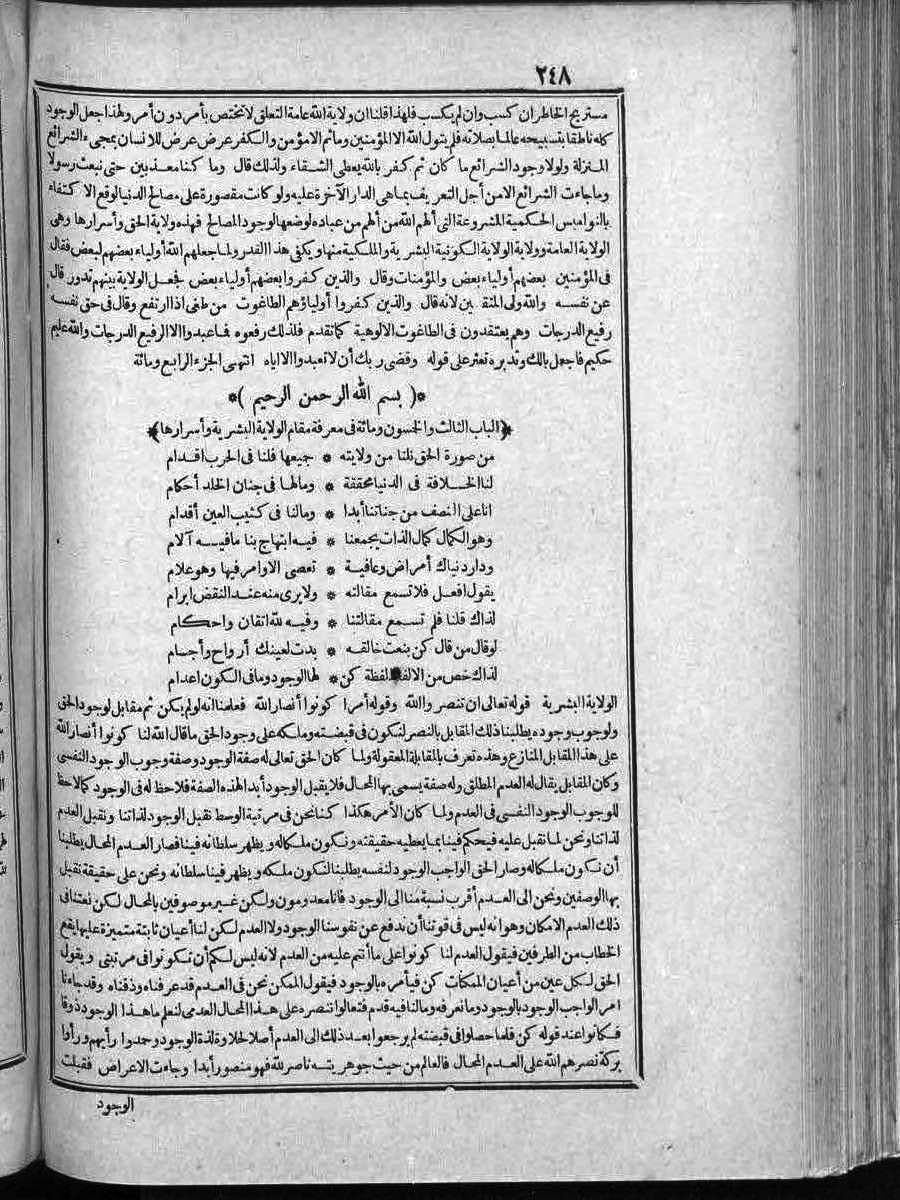 ٢٤٨
مستريح الخاطر ان كسب وان لم يكسب فلهذا قلنا ان ولاية الله عامة التعلق لا تختص بأمر دون أمر ولهذا جعل الوجود
كله ناطقا بتسبيحه عالما بصلاته فلم يتول الله الا المؤمنين وما ثم الا مؤمن والكفر عرض عرض للانسان بمجيء الشرائع
المنزلة ولولا وجود الشرائع ما كان ثم كفر بالله يعطى الشقاء ولذلك قال وما كنا معذبين حتى نبعث رسولا
وما جاءت الشرائع الا من أجل التعريف بما هى الدار الآخرة عليه ولو كانت مقصورة على مصالح الدنيا لوقع الاكتفاء
بالنواميس الحكمية المشروعة التى ألهم الله من ألهم من عباده لوضعها لوجود المصالح فهذه ولاية الحق وأسرارها وهى
الولاية العامة وولاية الولاية الكونية البشرية والملكية منها ويكفى هذا القدر ولما جعلهم الله أولياء بعضهم لبعض فقال
فى المؤمنين بعضهم أولياء بعض والمؤمنات وقال والذين كفروا بعضهم أولياء بعض فجعل الولاية بينهم تدور قال
عن نفسه والله ولى المتقين لانه قال والذين كفروا أولياؤهم الطاغوت من طغى اذا ارتفع وقال فى حق نفسه
رفيع الدرجات وهم يعتقدون فى الطاغوت الالوهية كما تقدم فلذلك رفعوه فما عبدوا الا الرفيع الدرجات والله عليم
حكيم فاجعل بالك وتدبره تعثر على قوله وقضى ربك أن لا تعبدوا الا اياه انتهى الجزء الرابع ومائة
*( بسم الله الرحمن الرحيم )*
﴿الباب الثالث والخمسون ومائة فى معرفة مقام الولاية البشرية وأسرارها﴾
من صورة الحق نلنا من ولايته * جميعها فلنا فى الحرب اقدام
لنا الخلافة فى الدنيا محققة * وما لها فى جنان الخلد أحكام
انا على النصف من جناتنا أبدا * وما لنا فى كثيب العين أقدام
وهو الكمال كمال الذات يجمعنا * فيه ابتهاج بنا ما فيه آلام
ودار دنياك أمراض وعافية * تعصى الاوامر فيها وهو علام
يقول افعل فلا تسمع مقالته * ولا يرى منه عند النقض ابرام
لذاك قلنا فلم تسمع مقالتنا * وفيه لله اتقان واحكام
لو قال من قال كن بنعت خالقه * بدت لعينك أرواح وأجسام
لذاك خص من الالفاظ لفظة كن * لها الوجود وما فى الكون اعدام
الولاية البشرية قوله تعالى ان تنصروا الله وقوله أمرا كونوا أنصار الله فعلمنا انه لو لم يكن ثم مقابل لوجود الحق
ولوجوب وجوده يطلبنا ذلك المقابل بالنصر لنكون فى قبضته وملكه على وجود الحق ما قال الله لنا كونوا أنصار الله
على هذا المقابل المنازع وهذه تعرف بالمقابلة المعقولة ولما كان الحق تعالى له صفة الوجود وصفة وجوب الوجود النفسى
وكان المقابل يقال له العدم المطلق وله صفة يسمى بها المحال فلا يقبل الوجود أبدا لهذه الصفة فلا حظ له فى الوجود كما لا حظ
للوجوب الوجود النفسى فى العدم ولما كان الأمر هكذا كنا نحن فى مرتبة الوسط نقبل الوجود لذاتنا ونقبل العدم
لذاتنا ونحن لما نقبل عليه فيحكم فينا بما يعطيه حقيقته ونكون ملكا له ويظهر سلطانه فينا فصار العدم المحال يطلبنا
أن نكون ملكا له وصار الحق الواجب الوجود لنفسه يطلبنا لنكون ملكه ويظهر فينا سلطانه ونحن على حقيقة نقبل
بها الوصفين ونحن الى العدم أقرب نسبة منا الى الوجود فانا معدومون ولكن غير موصوفين بالمحال لكن نعتنا فى
ذلك العدم الامكان وهو انه ليس فى قوتنا أن ندفع عن نفوسنا الوجود ولا العدم لكن لنا أعيان ثابتة متميزة عليها يقع
الخطاب من الطرفين فيقول العدم لنا كونوا على ما أنتم عليه من العدم لانه ليس لكم أن تكونوا فى مرتبتى ويقول
الحق لكل عين من أعيان الممكنات كن فيأمره بالوجود فيقول الممكن نحن فى العدم قد عرفناه وذقناه وقد جاءنا
امر الواجب الوجود بالوجود وما نعرفه وما لنا فيه قدم فتعالوا ننصره على هذا المحال العدمى لنعلم ما هذا الوجود ذوقا
فكانوا عند قوله كن فلما حصلوا فى قبضته لم يرجعوا بعد ذلك الى العدم أصلا لحلاوة لذة الوجود وحمدوا رأيهم ورأوا
بركة نصرهم الله على العدم المحال فالعالم من حيث جوهريته ناصر لله فهو منصور أبدا وجاءت الاعراض فقبلت
الوجود